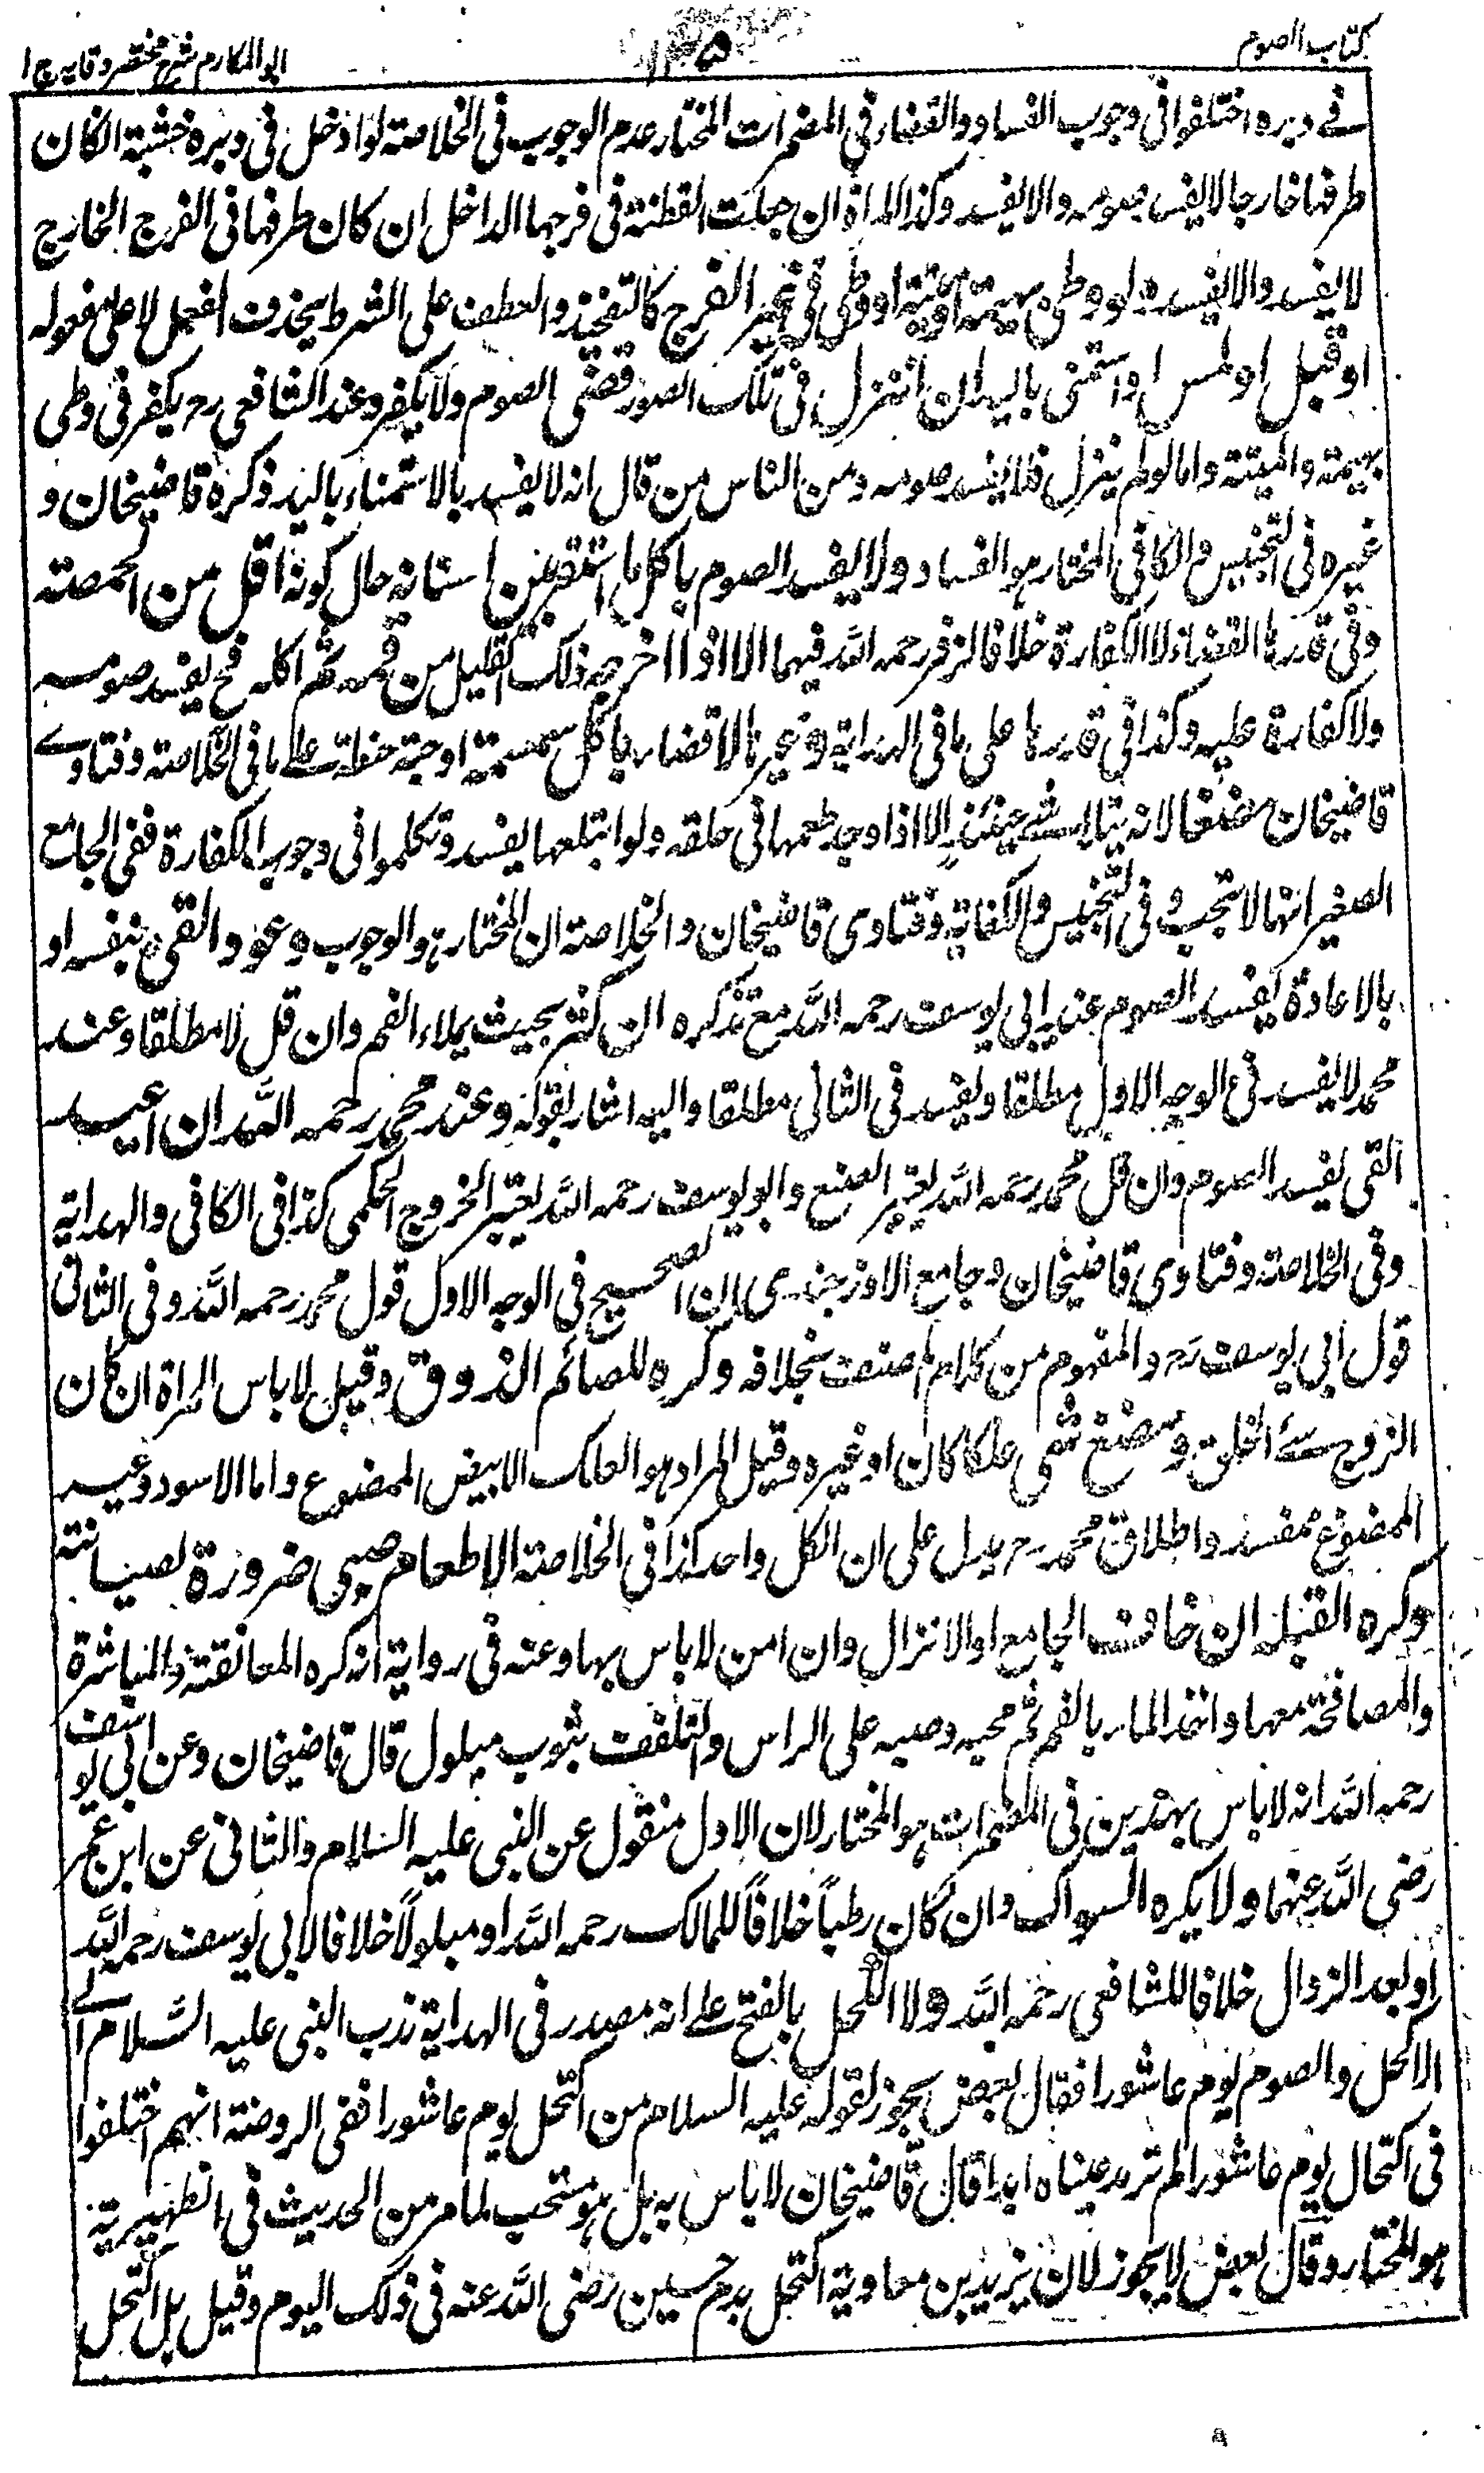 كتاب الصوم
ابو المكارم شرح مختصر وقايه ج ا
فے دبره اختلفوا فى وجوب الفساد والقضاء فى المضمرات المختار عدم الوجوب فى الخلاصة لو ادخل فى دبره خشبة انكان
طرفها خارجا لا يفسد صومه والا يفسد وكذا المراة ان جعلت القطنة فى فرجها الداخل ان كان طرفها فى الفرج الخارج
لا يفسد والا يفسد ولو وطى بهيمة او ميتة او وطى فى غير الفرج كالتفخيذ والعطف على الشرط بحذف الفعل لا على مفعوله
او قبل او لمس او استمنى باليد ان انزل فى تلك الصور قضى الصوم ولا يكفر وعند الشافعى رح يكفر فى وطى
بهيمة والميتة واما لو لم ينزل فلا يفسد صومه ومن الناس من قال انه لا يفسد بالاستمناء باليد ذكره قاضيخان و
غيره فى التجنيس والكافى المختار هو الفساد ولا يفسد الصوم باكل ما استقر بين اسنانه حال كونه اقل من الحمصة
وفى قدرها القضاء لا الكفارة خلافا لزفر رحمه الله فيهما الا اذا اخرجه ذلك القليل من فمه ثم اكله فح يفسد صومه
ولا كفارة عليه وكذا فى قدرها على ما فى الهداية وغيرها لا قضاء باكل سمسمة او حبة حنطة على ما فى الخلاصة وفتاوے
قاضيخان مضغا لانه يتلاشے حينئذ الا اذا وجد طعمها فى حلقه ولو ابتلعها يفسد وتكلموا فى وجوب الكفارة ففى الجامع
الصغير انها لا تجب و فى التجنيس والكفاية وفتاوى قاضيخان والخلاصة ان المختار هو الوجوب وعود القى بنفسه او
بالاعادة يفسد الصوم عند ابى يوسف رحمه الله مع تذكره ان كثر بحيث يملاء الفم وان قل لا مطلقا وعند
محمد لا يفسد فى الوجه الاول مطلقا ويفسد فى الثانى مطلقا واليه اشار بقوله وعند محمد رحمه الله ان اعيد
القى يفسد الصوم وان قل محمد رحمه الله يعتبر الصنع وابو يوسف رحمه الله يعتبر الخروج الحكمى كذا فى الكافى والهداية
وفى الخلاصة وفتاوى قاضيخان وجامع الاوزجندى ان الصحيح فى الوجه الاول قول محمد رحمه الله وفى الثانى
قول ابى يوسف رح والمفهوم من كلام المصنف بخلافه وكره للصائم الذوق وقيل لا باس للمراة ان كان
الزوج سئ الخلق ومضغ شى علكا كان او غيره وقيل المراد هو العلك الابيض الممضوغ واما الاسود وغير
الممضوغ مفسد واطلاق محمد رح يدل على ان الكل واحد كذا فى الخلاصة الا طعام صبى ضرورة لصيانته
وكره القبلة ان خاف الجماع او الانزال وان امن لا باس بها وعنه فى رواية انه كره المعانقة والمباشرة
والمصافحة معها واخذ الماء بالفم ثم مجه وصبه على الراس والتلفف بثوب مبلول قال قاضيخان وعن ابى يوسف
رحمه الله انه لا باس بهذين فى المضمرات هو المختار لان الاول منقول عن النبى عليه السلام والثانى عن ابن عمر
رضى الله عنهما ولا يكره السواك وان كان رطباً خلافاً للمالك رحمه الله او مبلولاً خلافا لابى يوسف رحمه الله
او بعد الزوال خلافا للشافعى رحمه الله ولا الكحل بالفتح على انه مصدر فى الهداية ندب النبى عليه السلام الے
الاكتحل والصوم يوم عاشورا فقال بعض يجوز لقوله عليه السلام من اكتحل يوم عاشورا ففى الروضة انهم اختلفوا
فى اكتحال يوم عاشورا لم ترمد عيناه ابدا قال قاضيخان لا باس به بل هو مستحب لما مر من الحديث فى الظهيرية
هو المختار وقال بعض لا يجوز لان يزيد بن معاوية اكتحل بدم حسين رضى الله عنه فى ذلك اليوم وقيل بل اكتحل